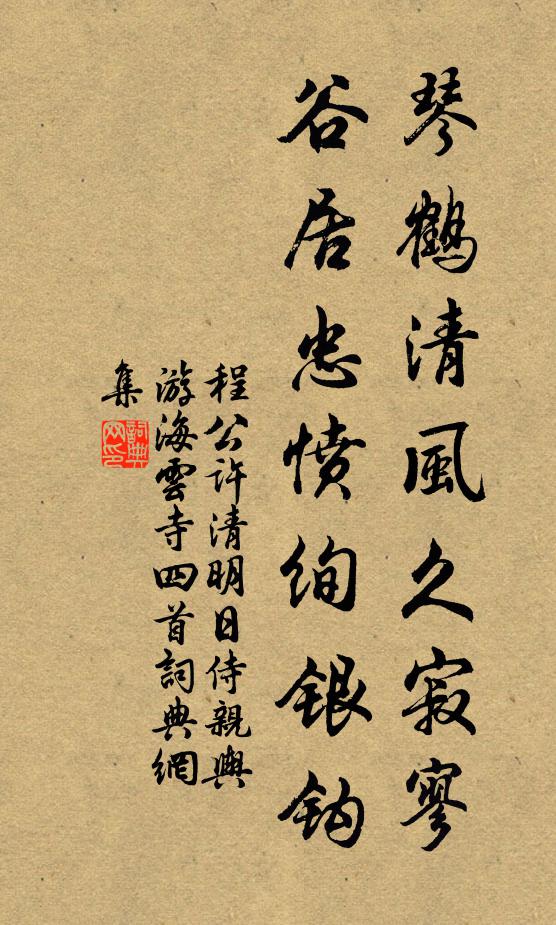 琴鶴清風久寂寥
谷居忠憤絢銀鈎
程公許清明日侍親輿
游海雲寺四首詞典網
集
詞典
网印